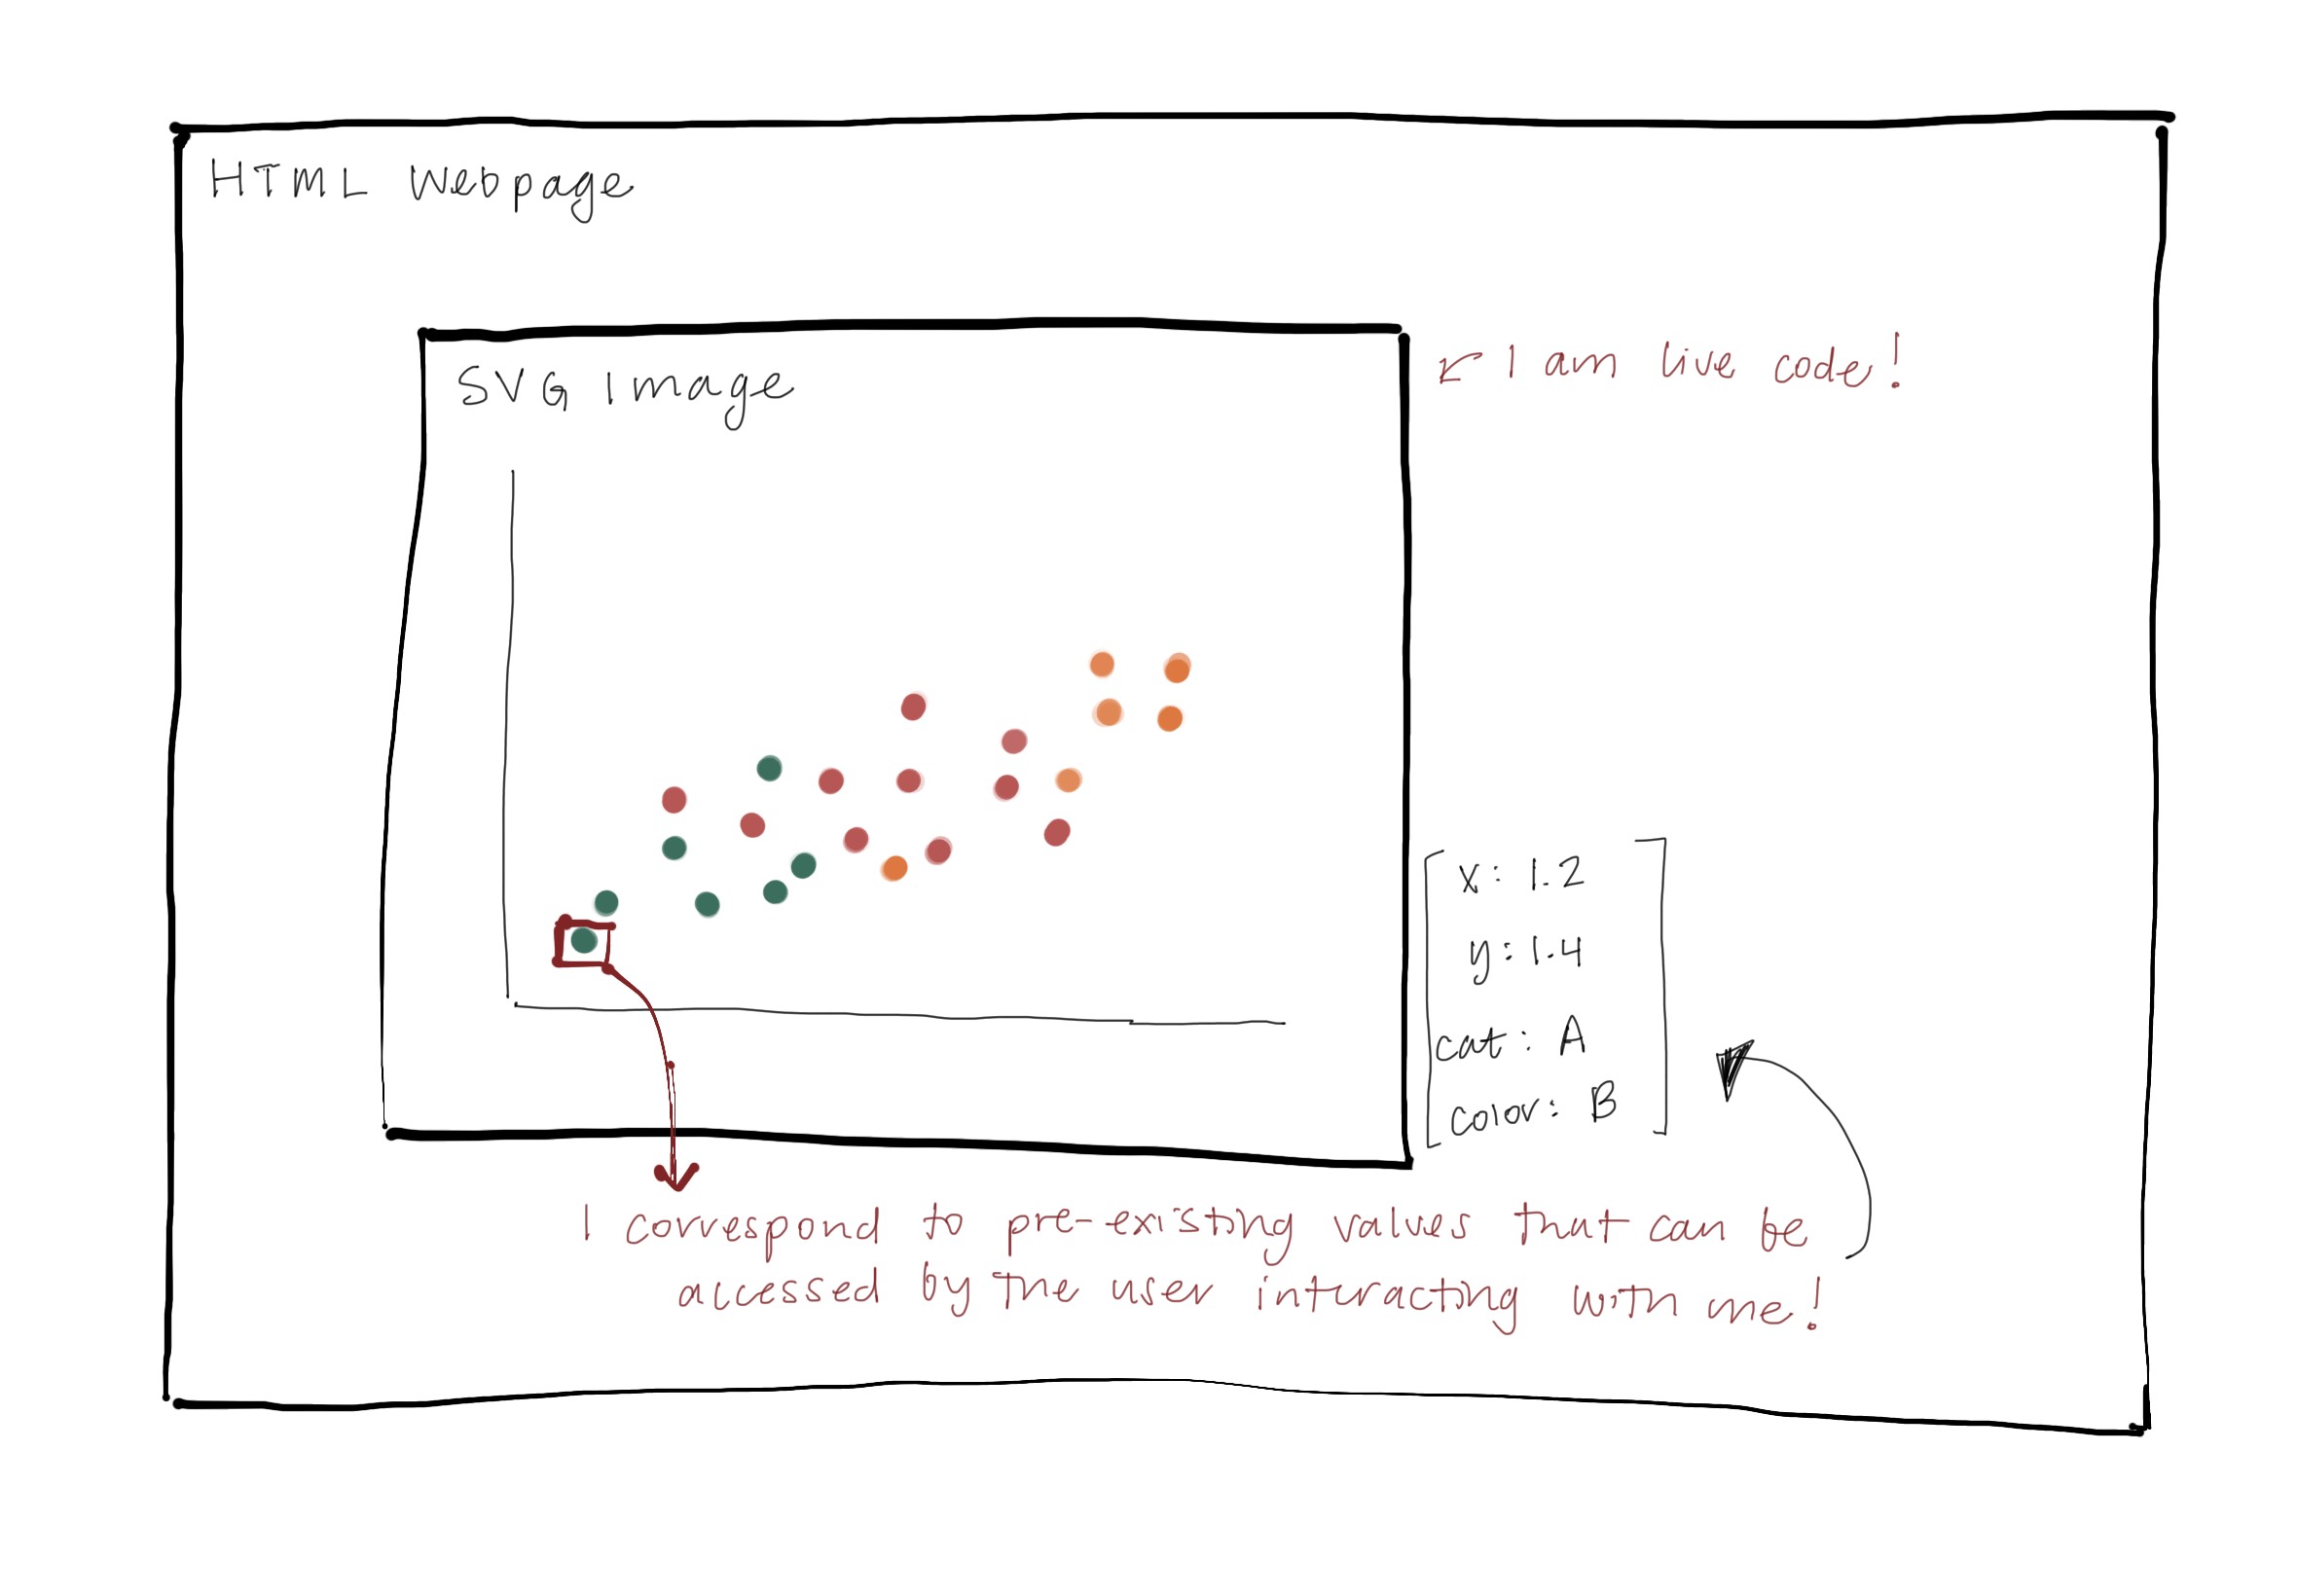 HTML Webpage
SVG Image
I am live code!
x: 1.2
y: 1.4
cat: A
color: B
I correspond to pre-existing values that can be
accessed by the user interacting with me!